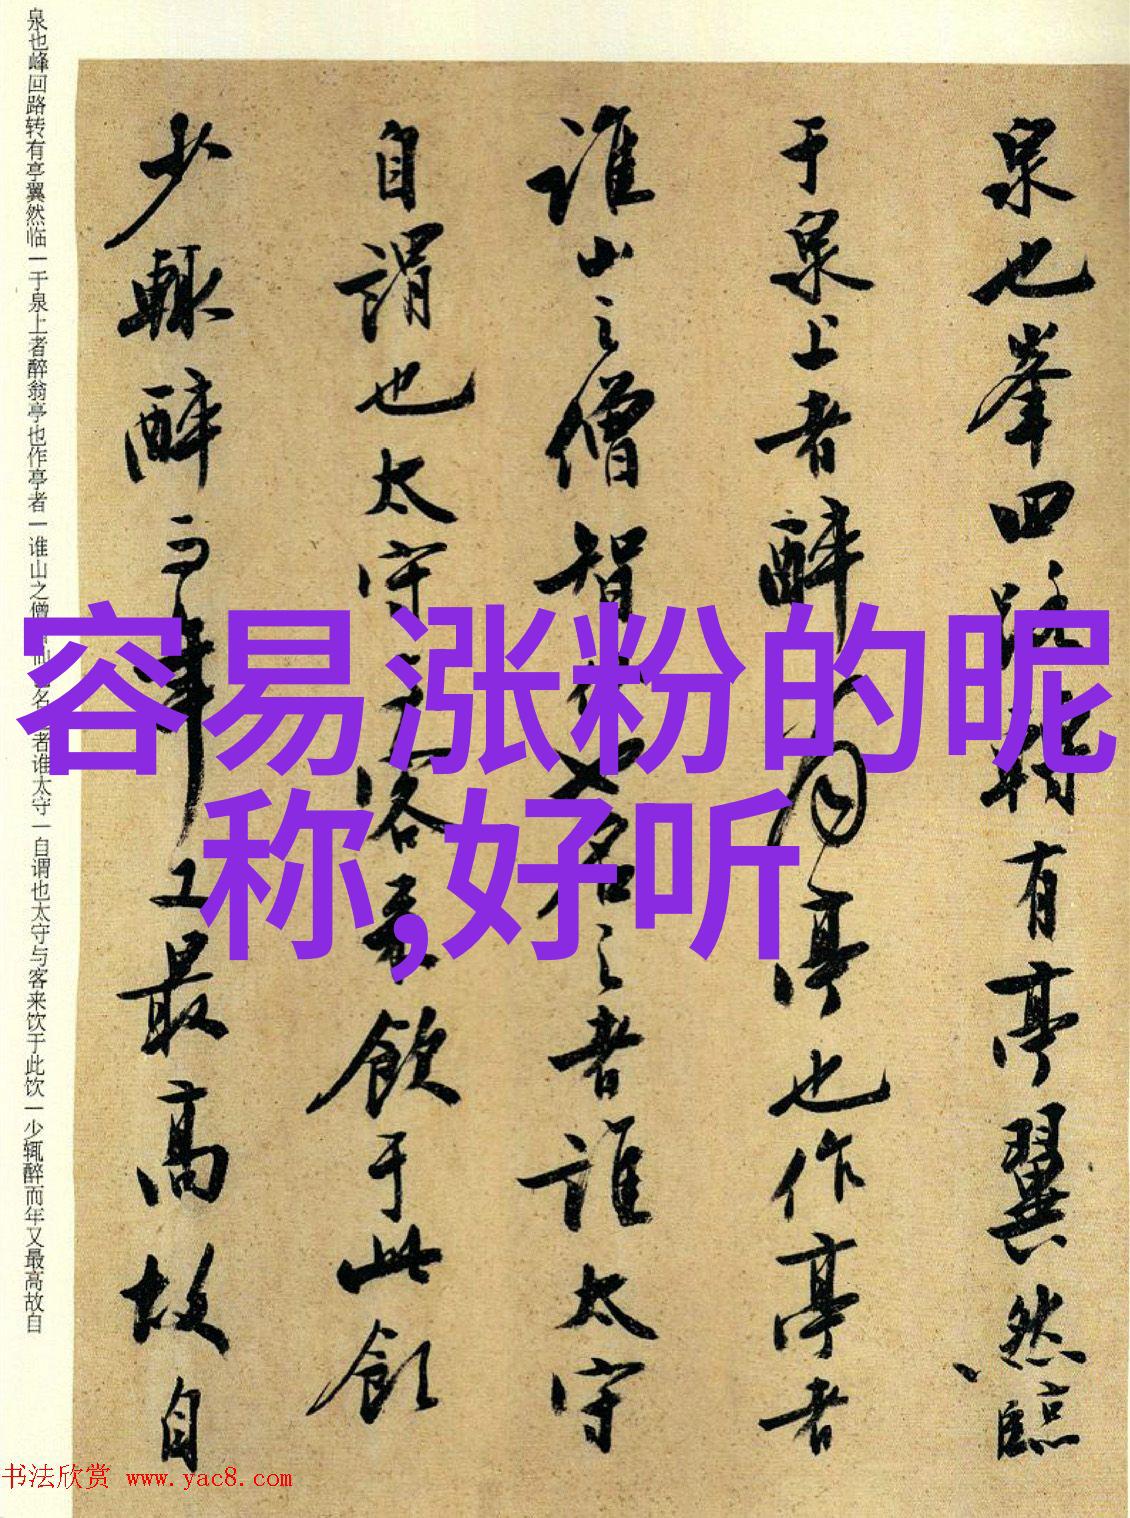 容易涨粉的昵
称,好听
泉也峯回路轉有亭翼然臨
于泉上者醉翁亭也作亭者
誰山之僧智也名之者誰太守
自謂也太守客来飲于此飲
少輒醉而年又最高故自
泉也峰回路转有亭翼然临一于泉上者醉翁亭也作亭者一谁山之僧名者谁太守一自谓也太守与客来饮于此饮一少辄醉而年又最高故自
书法欣赏 www.yac8.com